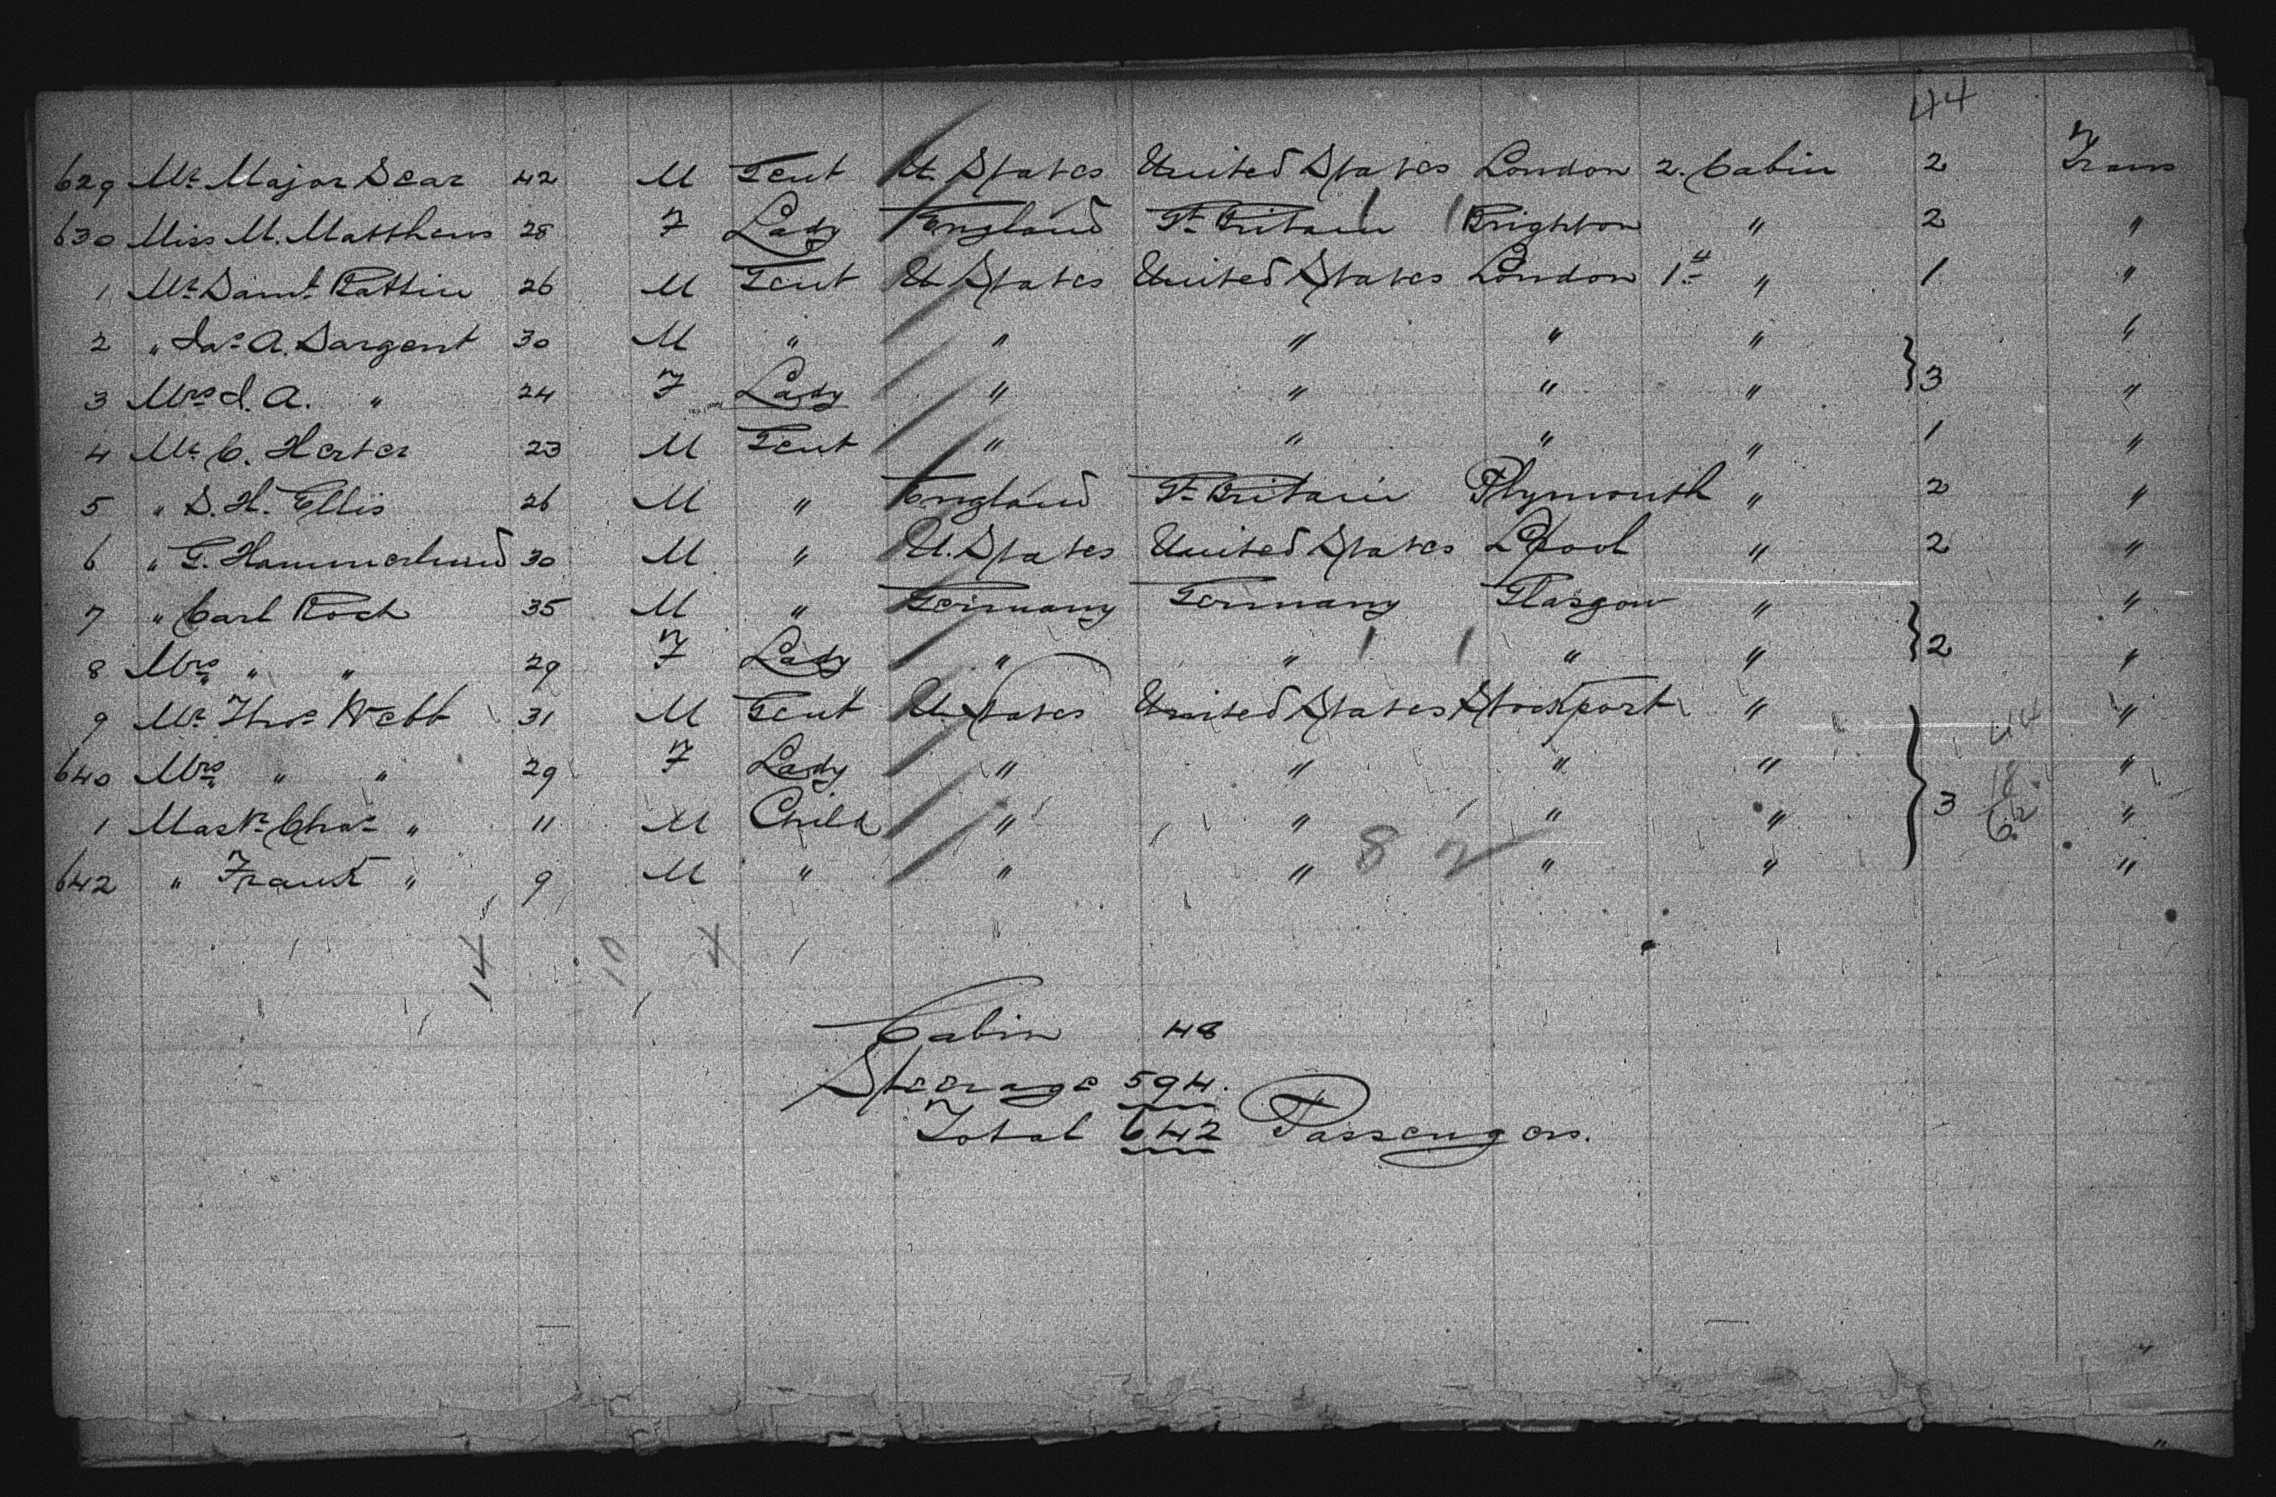 44
629 Mr. Major Sear 42 M Gent U. States United States London 2. Cabin 2 Trans
630 Miss M. Matthews 28 F Lady England Gt. Britain Brighton " 2 "
1 Mr. Saml. Rattin 26 M Gent U. States United States London 1st " 1 "
2 " Jas. A. Sargent 30 M " " " " " "
3 Mrs. J. A. " 24 F Lady " " " " } 3 "
4 Mr. C. Herter 23 M Gent " " " " 1 "
5 " S. H. Ellis 26 M " England Gt. Britain Plymouth " 2 "
6 " G. Hammerlund 30 M " U. States United States L'pool " 2 "
7 " Carl Koch 35 M " Germany Germany Glasgow " "
8 Mrs. " " 29 F Lady " " " " } 2 "
9 Mr. Thos. Webb 31 M Gent U. States United States Stockport " "
640 Mrs. " " 29 F Lady " " " " "
1 Mastr. Chas. " 11 M Child " " " " } 3 "
642 " Frank " 9 M " " " " " "
44
18
62
8 2
14 10 4
Cabin 48
Steerage 594.
Total 642 Passengers.